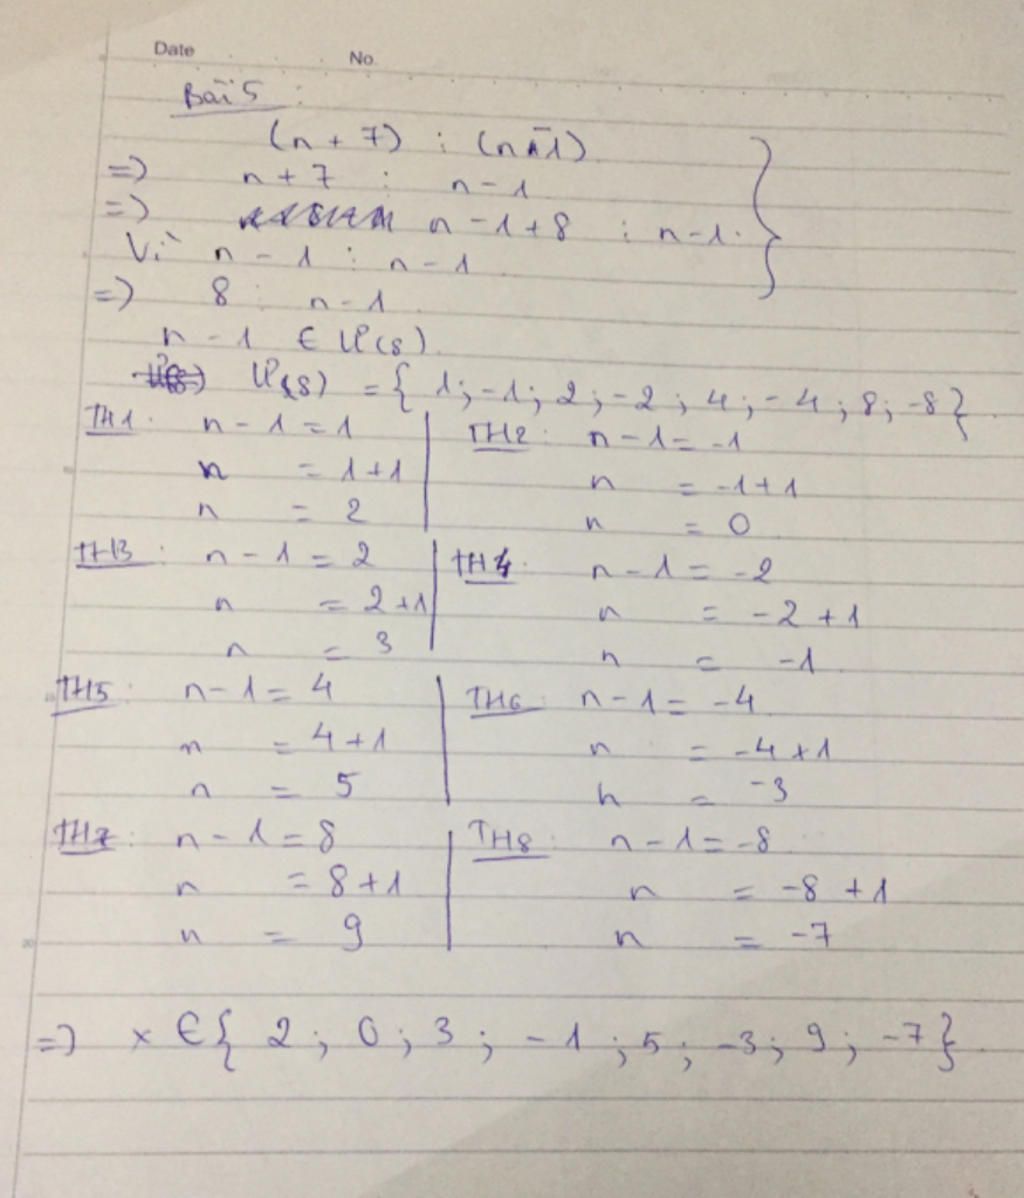 Date No.
Bài 5 :
(n + 7) ⋮ (n - 1)
=> n + 7 ⋮ n - 1
=> n - 1 + 8 ⋮ n - 1.
Vì n - 1 ⋮ n - 1
=> 8 ⋮ n - 1
n - 1 ∈ Ư(8)
Ư(8) = { 1 ; -1 ; 2 ; -2 ; 4 ; -4 ; 8 ; -8 }
TH1 : n - 1 = 1 TH2 : n - 1 = -1
n = 1 + 1 n = -1 + 1
n = 2 n = 0
TH3 : n - 1 = 2 TH4 : n - 1 = -2
n = 2 + 1 n = -2 + 1
n = 3 n = -1
TH5 : n - 1 = 4 TH6 : n - 1 = -4
n = 4 + 1 n = -4 + 1
n = 5 n = -3
TH7 : n - 1 = 8 TH8 : n - 1 = -8
n = 8 + 1 n = -8 + 1
n = 9 n = -7
=> x ∈ { 2 ; 0 ; 3 ; -1 ; 5 ; -3 ; 9 ; -7 }